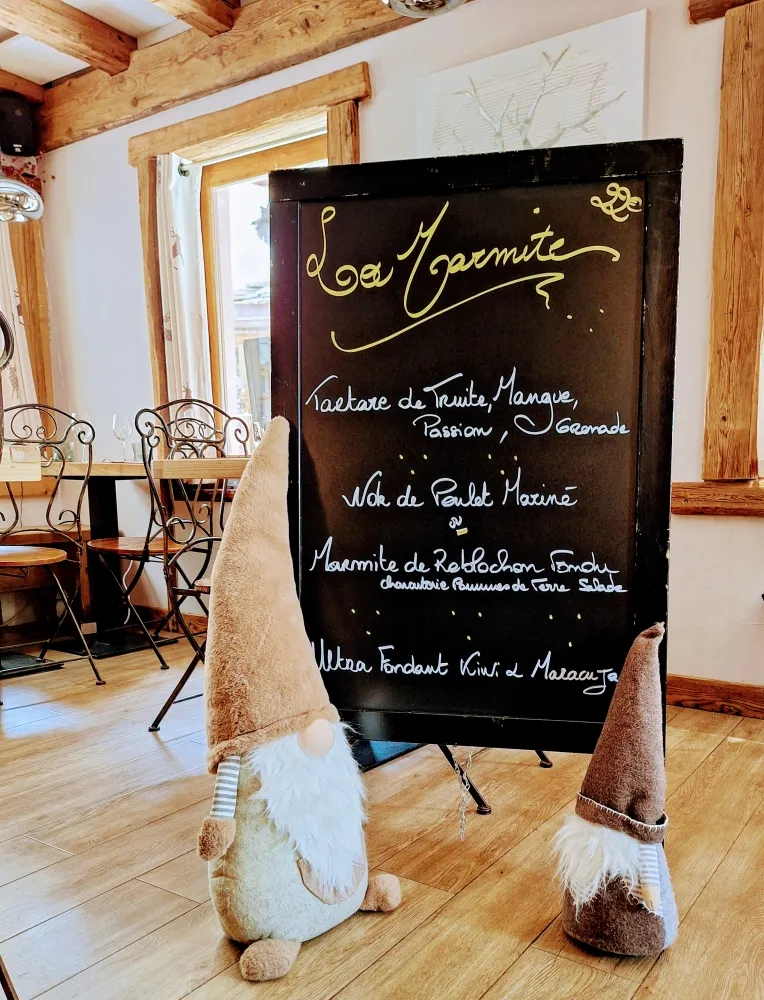 La Marmite
22€
Tartare de Truite, Mangue,
Passion, Grenade
Wok de Poulet Mariné
ou
Marmite de Reblochon Fondu
charcuterie Pommes de Terre Salade
Ultra Fondant Kiwi & Maracuja